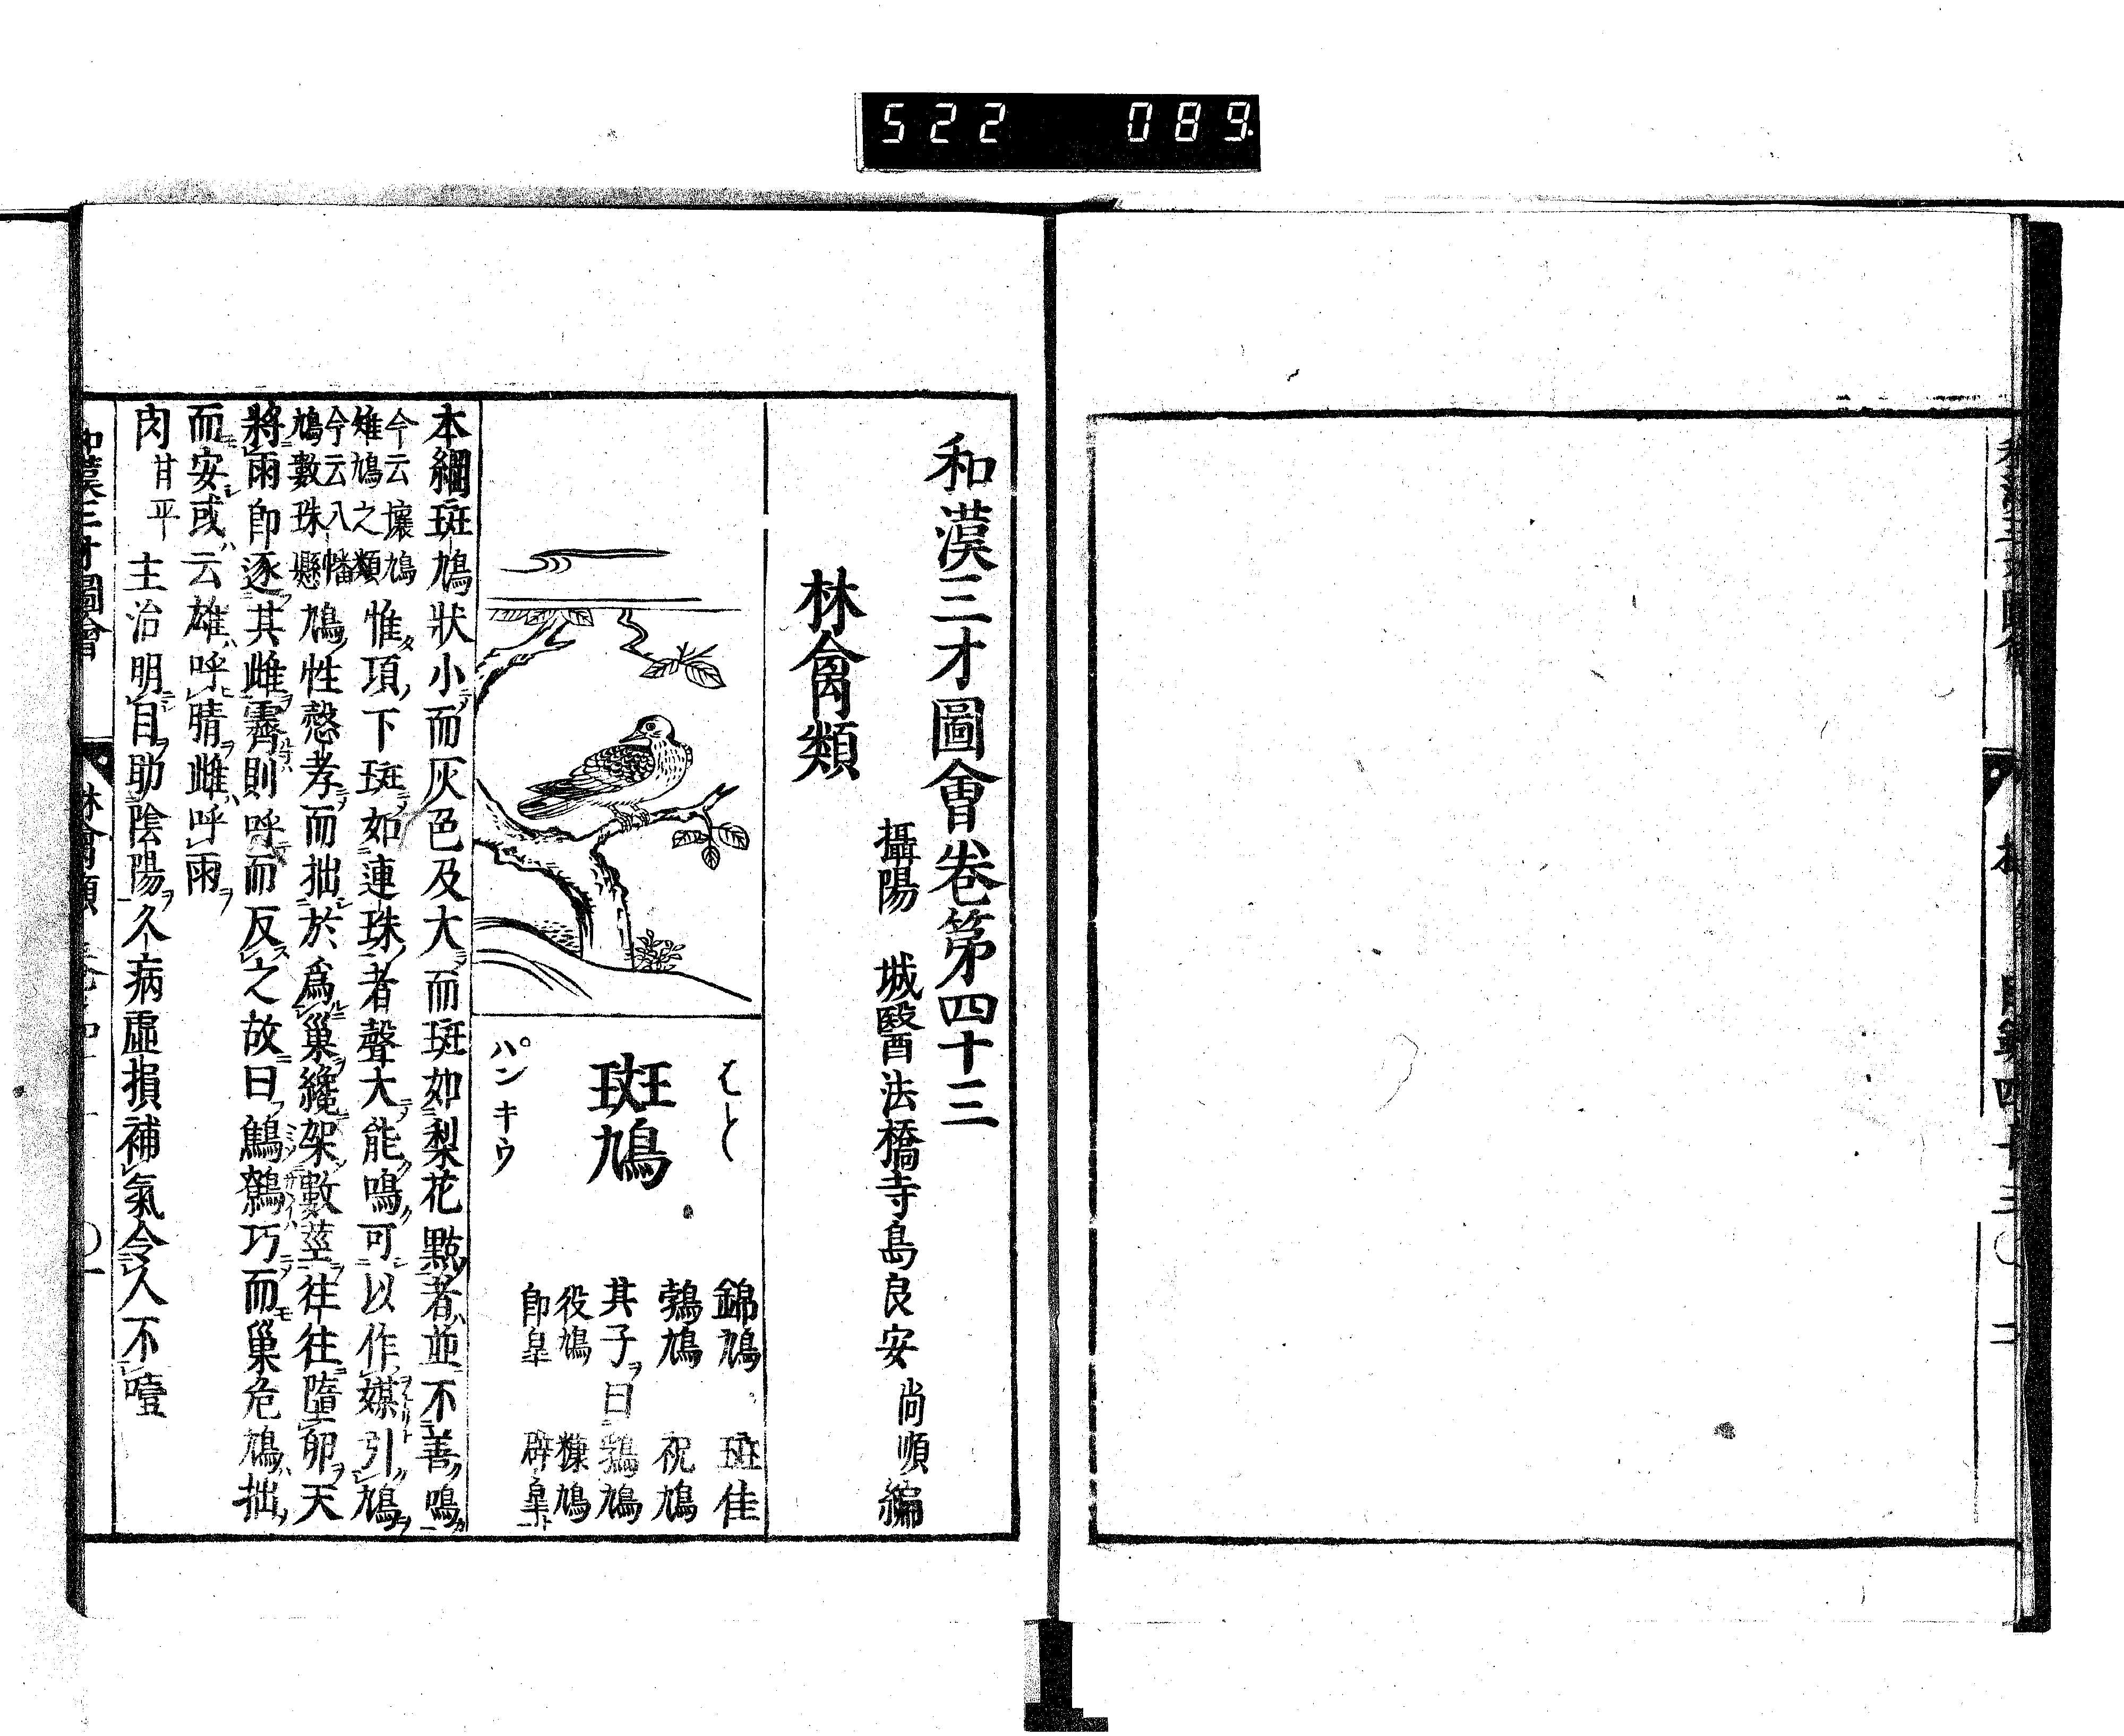 522 089.
和漢三才圖會卷第四十三
攝陽 城醫法橋寺島良安 尚順 編
林禽類
はと
斑鳩
パンキウ
錦鳩 斑隹
鵓鳩 祝鳩
其子ヲ曰鶉鳩
役鳩 糠鳩
郎皐 辟皐
本綱斑鳩狀小而灰色及大而斑如梨花點者並不善鳴
今云壤鳩
雉鳩之類
惟項下斑如連珠者聲大能鳴可以作媒引鳩
今云八幡
鳩數珠懸
鳩性慤孝而拙於爲巢纔架數莖往往墮卵天
將雨卽逐其雌霽則呼而反之故曰鷦鷯巧而巢危鳩拙
而安或云雄呼晴雌呼雨
肉
甘平
主治明目助陰陽久病虛損補氣令人不噎
和漢三才圖會 林禽類 〇一